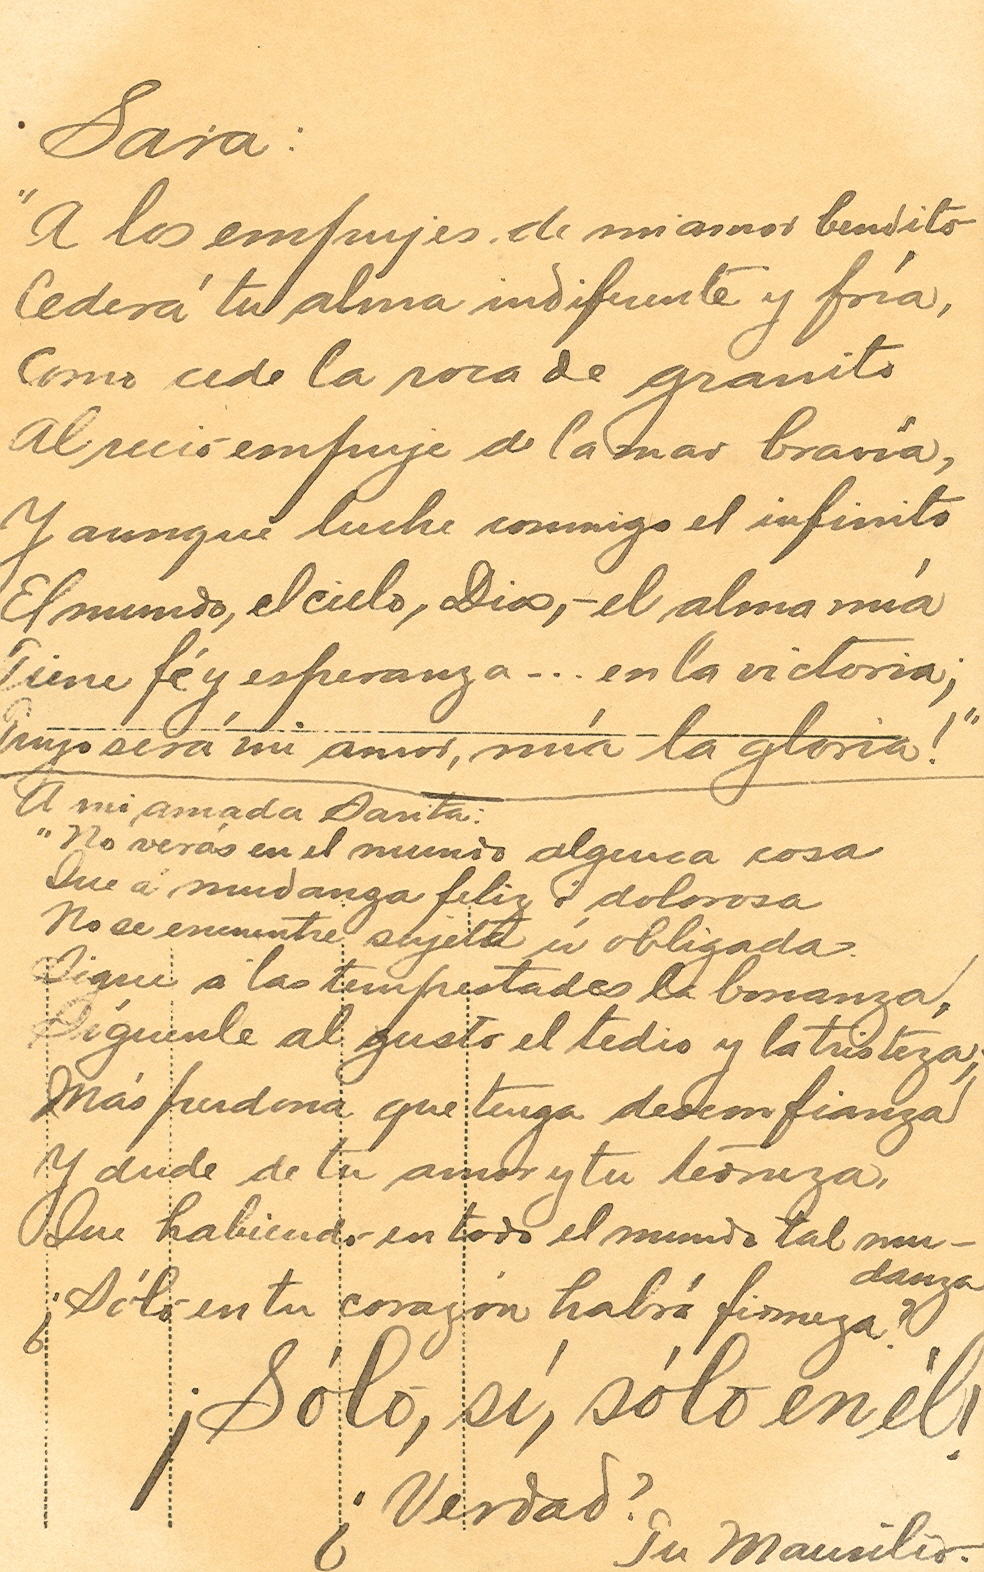 Sara:
"A los empujes de mi amor bendito
Cederá tu alma indiferente y fría,
Como cede la roca de granito
Al recio empuje de la mar bravía,
Y aunque luche conmigo el infinito
El mundo, el cielo, Dios,- el alma mía
Tiene fé y esperanza --... en la victoria;
Tuyo será mi amor, mía la gloria!"
A mi amada Sarita:
"No verás en el mundo alguna cosa
Que á mudanza feliz ó dolorosa
No se encuentre sujeta ú obligada.
Sigue á las tempestades la bonanza,
Síguenle al gusto el tedio y la tristeza;
Más perdona que tenga desconfianza
Y dude de tu amor y tu terneza,
Que habiendo en todo el mundo tal mu-
danza
¿Sólo en tu corazón habrá firmeza?
¡Sólo, sí, sólo en él!
¿Verdad?
Tu Maurilio.